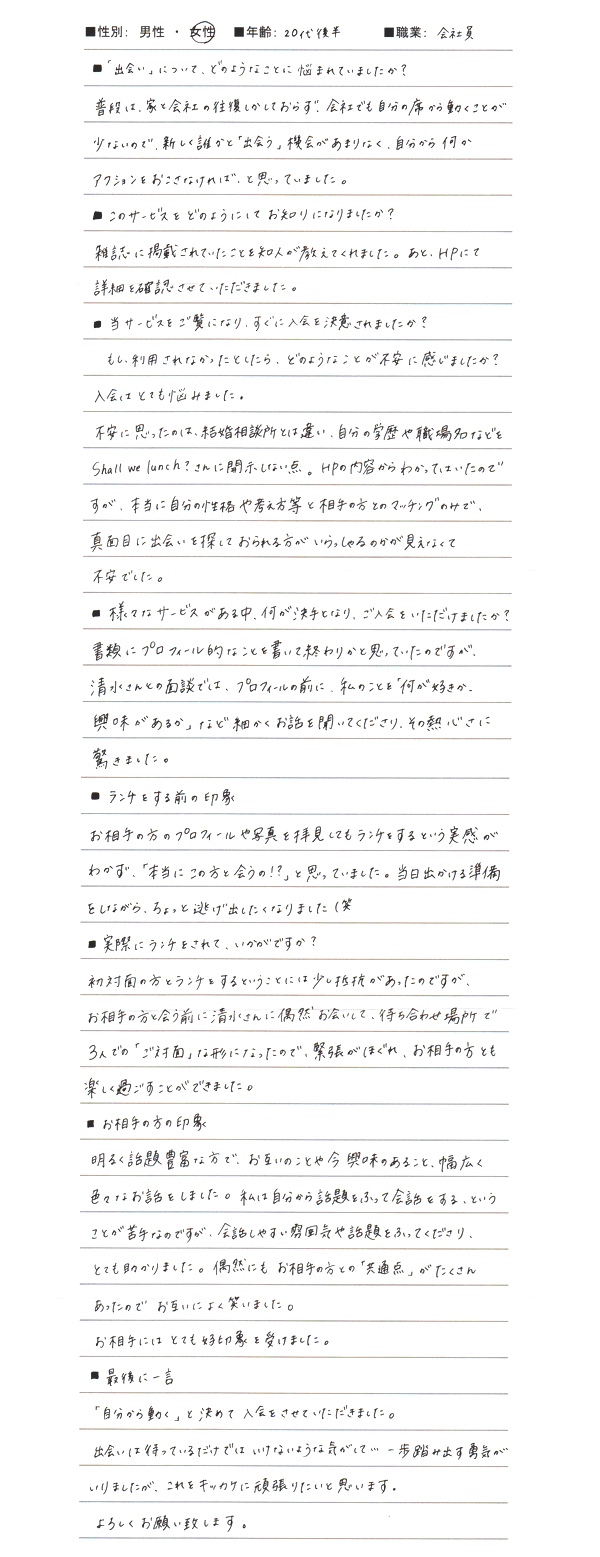 ■性別: 男性 ・ 女性 ■年齢: 20代後半 ■職業: 会社員
■「出会い」について、どのようなことに悩まれていましたか?
普段は、家と会社の往復しかしておらず、会社でも自分の席から動くことが
少ないので、新しく誰かと「出会う」機会があまりなく、自分から何か
アクションをおこさなければ、と思っていました。
■このサービスをどのようにしてお知りになりましたか?
雑誌に掲載されていたことを知人が教えてくれました。あと、HPにて
詳細を確認させていただきました。
■当サービスをご覧になり、すぐに入会を決意されましたか?
もし、利用されなかったとしたら、どのようなことが不安に感じましたか?
入会はとても悩みました。
不安に思ったのは、結婚相談所とは違い、自分の学歴や職場名などを
Shall we lunch?さんに開示しない点。HPの内容からわかってはいたので
すが、本当に自分の性格や考え方等と相手の方とのマッチングのみで、
真面目に出会いを探しておられる方がいらっしゃるのかが見えなくて
不安でした。
■様々なサービスがある中、何が決手となり、ご入会をいただけましたか?
書類にプロフィール的なことを書いて終わりかと思っていたのですが、
清水さんとの面談では、プロフィールの前に、私のことを「何が好きか、
興味があるか」など細かくお話を聞いてくださり、その熱心さに
驚きました。
■ランチをする前の印象
お相手の方のプロフィールや写真を拝見してもランチをするという実感が
わかず、「本当にこの方と会うの!?」と思っていました。当日出かける準備
をしながら、ちょっと逃げ出したくなりました(笑
■実際にランチをされて、いかがですか?
初対面の方とランチをするということには少し抵抗があったのですが、
お相手の方と会う前に清水さんに偶然お会いして、待ち合わせ場所で
3人での「ご対面」な形になったので、緊張がほぐれ、お相手の方とも
楽しく過ごすことができました。
■お相手の方の印象
明るく話題豊富な方で、お互いのことや今興味のあること、幅広く
色々なお話をしました。私は自分から話題をふって会話をする、という
ことが苦手なのですが、会話しやすい雰囲気や話題をふってくださり、
とても助かりました。偶然にもお相手の方との「共通点」がたくさん
あったのでお互いによく笑いました。
お相手にはとても好印象を受けました。
■最後に一言
「自分から動く」と決めて入会をさせていただきました。
出会いは待っているだけではいけないような気がして… 一歩踏み出す勇気が
いりましたが、これをキッカケに頑張りたいと思います。
よろしくお願い致します。